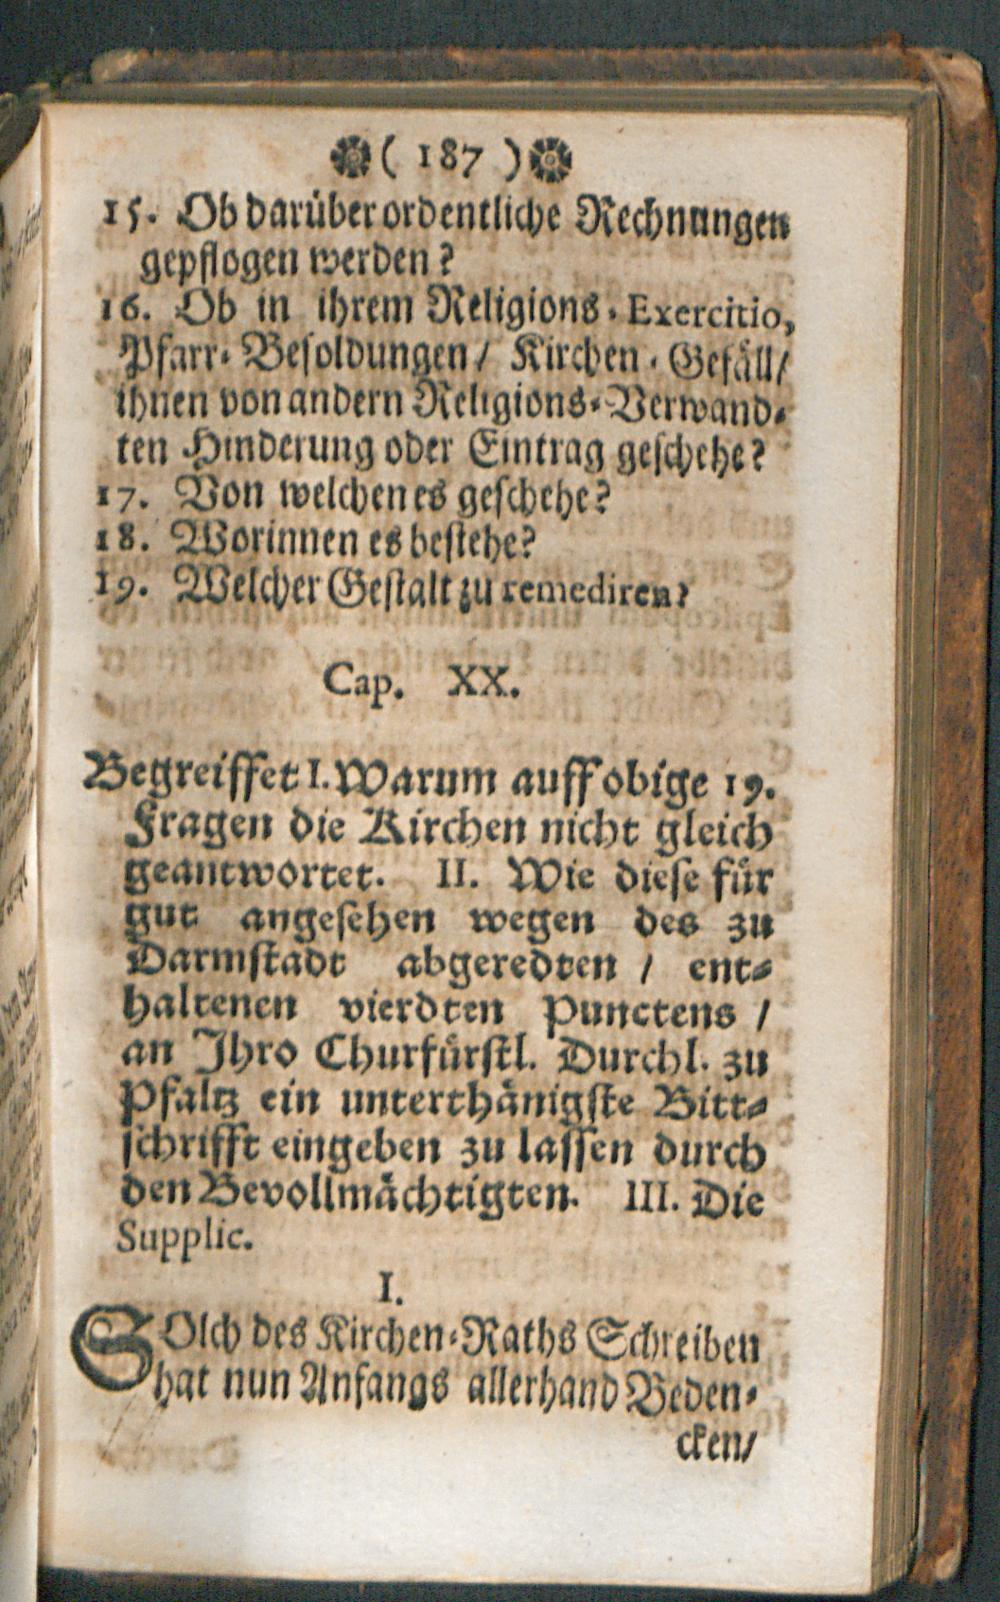 ( 187 )
15. Ob darüber ordentliche Rechnungen
gepflogen werden?
16. Ob in ihrem Religions-Exercitio,
Pfarr-Besoldungen/ Kirchen-Gefäll/
ihnen von andern Religions-Verwand-
ten Hinderung oder Eintrag geschehe?
17. Von welchen es geschehe?
18. Worinnen es bestehe?
19. Welcher Gestalt zu remediren?
Cap. XX.
Begreiffet I. Warum auff obige 19.
Fragen die Kirchen nicht gleich
geantwortet. II. Wie diese für
gut angesehen wegen des zu
Darmstadt abgeredten / ent-
haltenen vierdten Punctens /
an Ihro Churfürstl. Durchl. zu
Pfaltz ein unterthänigste Bitt-
schrifft eingeben zu lassen durch
den Bevollmächtigten. III. Die
Supplic.
I.
SOlch des Kirchen-Raths Schreiben
hat nun Anfangs allerhand Beden-
cken/